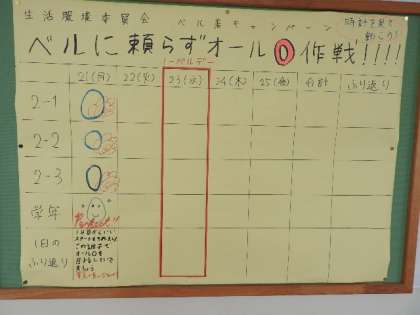 生活環境委員会 ベル着キャンペーン 時計を見て
動こう!
ベルに頼らずオール0作戦!!!!
ノーベルデー
21(月) 22(火) 23(水) 24(木) 25(金) 合計 ふり返り
2-1 0
2-2 0
2-3 0
学年
1日の
ふり返り
1日目からいい
オール0を